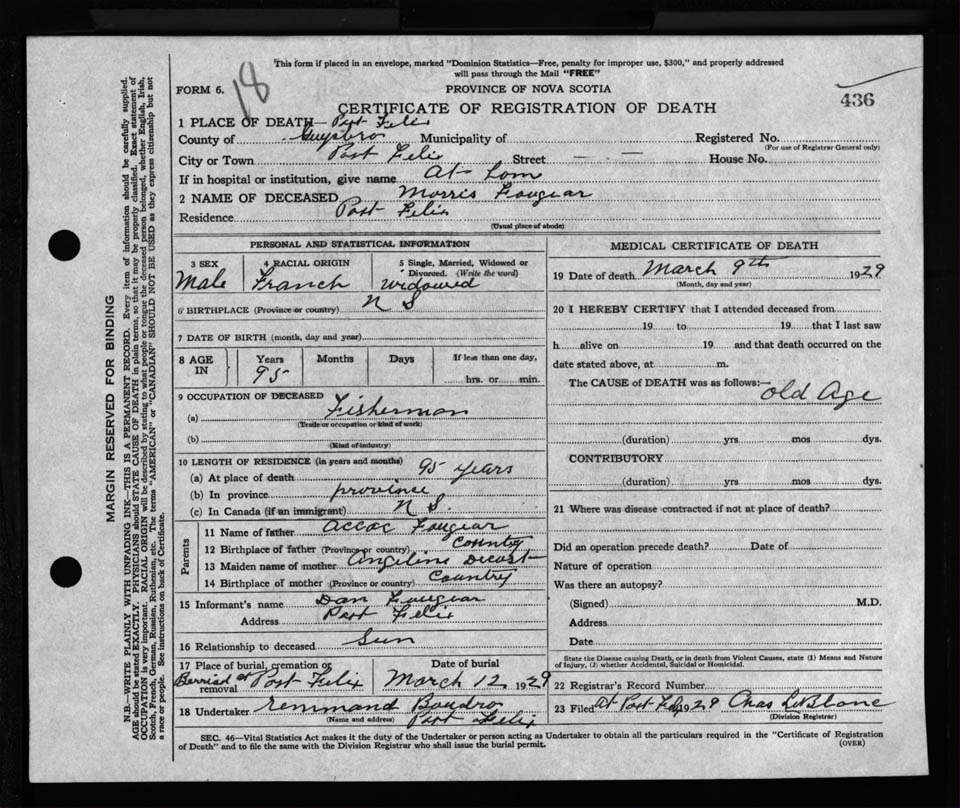 18
This form if placed in an envelope, marked "Dominion Statistics—Free, penalty for improper use, $300," and properly addressed
will pass through the Mail "FREE"
FORM 6.
PROVINCE OF NOVA SCOTIA
436
CERTIFICATE OF REGISTRATION OF DEATH
1 PLACE OF DEATH— Port Felix
County of Guysboro Municipality of Registered No.
(For use of Registrar General only)
City or Town Port Felix Street — — House No.
If in hospital or institution, give name At Lom
2 NAME OF DECEASED Morris Fougear
Residence Port Felix
(Usual place of abode)
PERSONAL AND STATISTICAL INFORMATION
3 SEX 4 RACIAL ORIGIN 5 Single, Married, Widowed or Divorced. (Write the word)
Male Franch widowed
6 BIRTHPLACE (Province or country) N S
7 DATE OF BIRTH (month, day and year)
8 AGE IN Years Months Days If less than one day,
95 hrs. or min.
9 OCCUPATION OF DECEASED
(a) Fisherman
(Trade or occupation or kind of work)
(b)
(Kind of industry)
10 LENGTH OF RESIDENCE (in years and months)
(a) At place of death 95 years
(b) In province province
(c) In Canada (if an immigrant) N S.
Parents
11 Name of father Accac Fougear
12 Birthplace of father (Province or country) Country
13 Maiden name of mother Angeline Decost
14 Birthplace of mother (Province or country) Country
15 Informant's name Dan Fougear
Address Port Felix
16 Relationship to deceased Sun
17 Place of burial, cremation or removal Date of burial
Berried at Port Felix March 12 1929
18 Undertaker Remmand Boudro
(Name and address) Port Felix
MEDICAL CERTIFICATE OF DEATH
19 Date of death March 9th 1929
(Month, day and year)
20 I HEREBY CERTIFY that I attended deceased from
19 to 19 that I last saw
h alive on 19 and that death occurred on the
date stated above, at m.
The CAUSE of DEATH was as follows:—
old Age
(duration) yrs mos dys.
CONTRIBUTORY
(duration) yrs. mos dys.
21 Where was disease contracted if not at place of death?
Did an operation precede death? Date of
Nature of operation
Was there an autopsy?
(Signed) M.D.
Address
Date
State the Disease causing Death, or in death from Violent Causes, state (1) Means and Nature
of Injury, (2) whether Accidental, Suicidal or Homicidal.
22 Registrar's Record Number
23 Filed At Port Felix 1929 Chas LeBlanc
(Division Registrar)
SEC. 46—Vital Statistics Act makes it the duty of the Undertaker or person acting as Undertaker to obtain all the particulars required in the "Certificate of Registration
of Death" and to file the same with the Division Registrar who shall issue the burial permit.
(OVER)
MARGIN RESERVED FOR BINDING
N.B.—WRITE PLAINLY WITH UNFADING INK—THIS IS A PERMANENT RECORD. Every item of information should be carefully supplied.
AGE should be stated EXACTLY. PHYSICIANS should STATE CAUSE OF DEATH in plain terms, so that it may be properly classified. Exact statement of
OCCUPATION is very important. RACIAL ORIGIN will be described by stating to what people or tongue the deceased person belonged, whether English, Irish,
Scotch, French, German, Russian, Ruthenian, etc. The terms "AMERICAN" or "CANADIAN" SHOULD NOT BE USED as they express citizenship but not
a race or people. See instructions on back of Certificate.